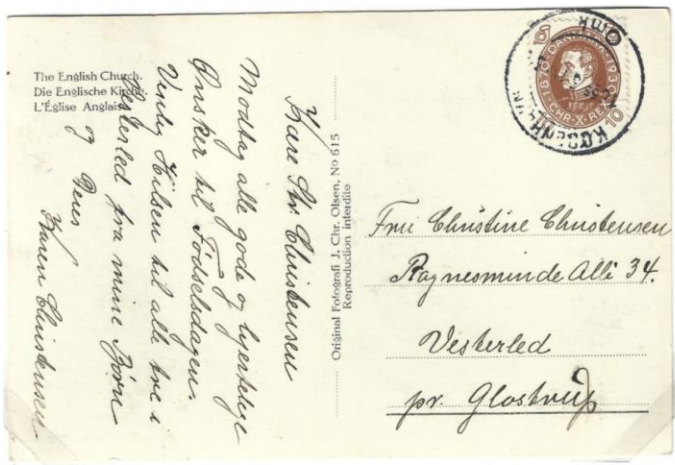 The English Church.
Die Englische Kirche.
L'Église Anglaise
Kære Chr. Christensen
Modtag alle gode og hjertelige
Ønsker til Fødselsdagen.
Venlig Hilsen til alle tre i
Vesterled fra mine Børn
og Deres
Karen Christensen
Original Fotografi J. Chr. Olsen, No 615
Reproduction interdite
1870 DANMARK 193
CHR·X·REX
10
OMK
KØBENHAVN
Fru Christine Christensen
Ragnesminde Allé 34.
Vesterled
pr. Glostrup